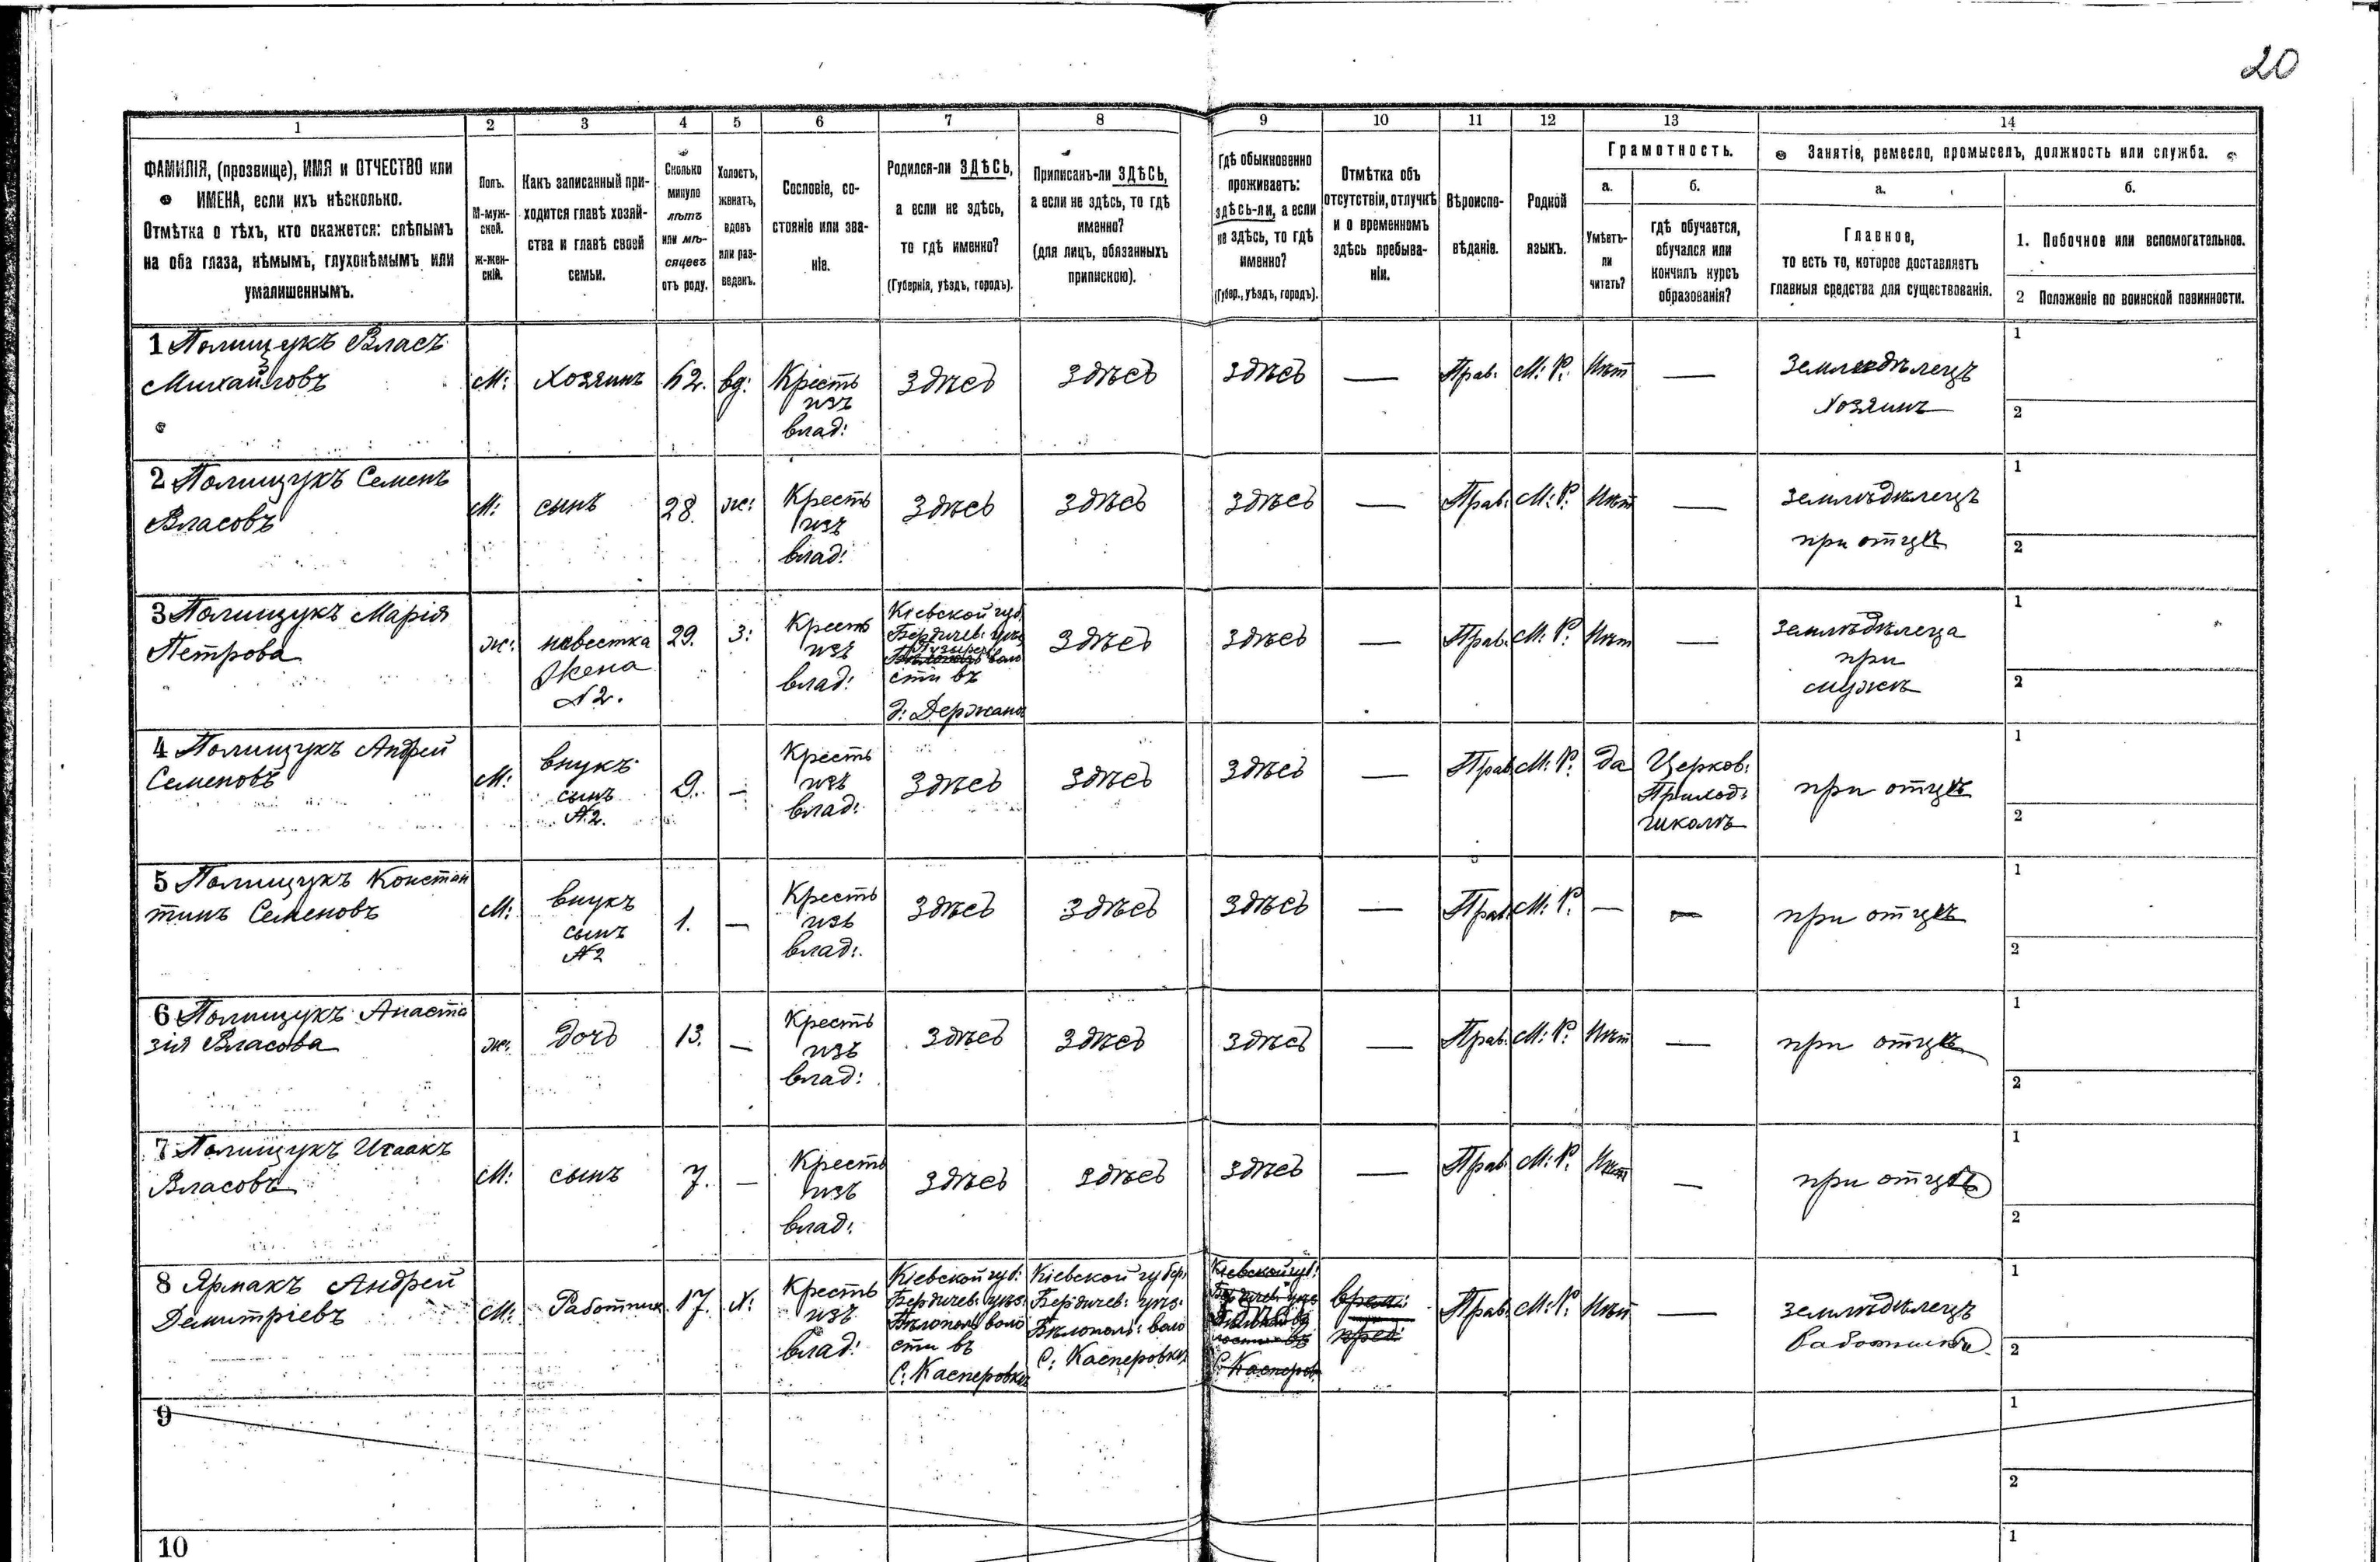 20
1 2 3 4 5 6 7 8 9 10 11 12 13 14
ФАМИЛІЯ, (прозвище), ИМЯ и ОТЧЕСТВО или
ИМЕНА, если ихъ нѣсколько.
Отмѣтка о тѣхъ, кто окажется: слѣпымъ
на оба глаза, нѣмымъ, глухонѣмымъ или
умалишеннымъ.
Полъ.
М-муж-
ской.
ж-жен-
скій.
Какъ записанный при-
ходится главѣ хозяй-
ства и главѣ своей
семьи.
Сколько
минуло
лѣтъ
или мѣ-
сяцевъ
отъ роду.
Холостъ,
женатъ,
вдовъ
или раз-
веденъ.
Сословіе, со-
стояніе или зва-
ніе.
Родился-ли ЗДѢСЬ,
а если не здѣсь,
то гдѣ именно?
(Губернія, уѣздъ, городъ).
Приписанъ-ли ЗДѢСЬ,
а если не здѣсь, то гдѣ
именно?
(для лицъ, обязанныхъ
припискою).
Гдѣ обыкновенно
проживаетъ:
здѣсь-ли, а если
не здѣсь, то гдѣ
именно?
(Губер., уѣздъ, городъ).
Отмѣтка объ
отсутствіи, отлучкѣ
и о временномъ
здѣсь пребыва-
ніи.
Вѣроиспо-
вѣданіе.
Родной
языкъ.
Грамотность.
а.
Умѣетъ-
ли
читать?
б.
гдѣ обучается,
обучался или
кончилъ курсъ
образованія?
Занятіе, ремесло, промыселъ, должность или служба.
а.
Главное,
то есть то, которое доставляетъ
главныя средства для существованія.
б.
1. Побочное или вспомогательное.
2 Положеніе по воинской повинности.
1 Полищукъ Власъ
Михайловъ
М:
Хозяинъ
62.
вд:
Кресть
изъ
влад:
Здѣсь
Здѣсь
Здѣсь
—
Прав:
М: Р:
Нѣт
—
Земледѣлецъ
Хозяинъ
1
2
2 Полищукъ Семенъ
Власовъ
М:
сынъ
28.
ж:
Кресть
изъ
влад:
Здѣсь
Здѣсь
Здѣсь
—
Прав:
М: Р:
Нѣт
—
Землѣдѣлецъ
при отцѣ
1
2
3 Полищукъ Марія
Петрова
ж:
невестка
Жена
№2.
29.
З:
Кресть
изъ
влад:
Кіевской губ.
Бердичев: уѣз
воло
сти въ
Здѣсь
Здѣсь
—
Прав:
М: Р:
Нѣт
—
Землѣдѣлеца
при
мужѣ
1
2
4 Полищукъ Андрей
Семеновъ
М:
внукъ
сынъ
№2.
9.
—
Кресть
изъ
влад:
Здѣсь
Здѣсь
Здѣсь
—
Прав:
М: Р:
да
Церков:
Приход:
школѣ
при отцѣ
1
2
5 Полищукъ Констан
тинъ Семеновъ
М:
внукъ
сынъ
№2
1.
—
Кресть
изъ
влад:
Здѣсь
Здѣсь
Здѣсь
—
Прав:
М: Р:
—
—
при отцѣ
1
2
6 Полищукъ Анаста
зія Власова
ж:
дочь
13.
—
Кресть
изъ
влад:
Здѣсь
Здѣсь
Здѣсь
—
Прав:
М: Р:
Нѣт
—
при отцѣ
1
2
7 Полищукъ Исаакъ
Власовъ
М:
сынъ
7.
—
Кресть
изъ
влад:
Здѣсь
Здѣсь
Здѣсь
—
Прав:
М: Р:
Нѣт
—
при отцѣ
1
2
8 Ярмакъ Андрей
Демитріевъ
М:
Работник
17.
Х:
Кресть
изъ
влад:
Кіевской губ:
Бердичев: уѣз:
Бѣлополь воло
сти въ
С: Касперовке
Кіевской губер:
Бердичев: уѣз:
Бѣлополь: воло
С: Касперовке
Кіевской губ:
Бердичев: уѣз
С: Касперов
врем:
преб:
Прав:
М: Р:
Нѣт
—
землѣдѣлецъ
работникъ
1
2
9
1
2
10
1